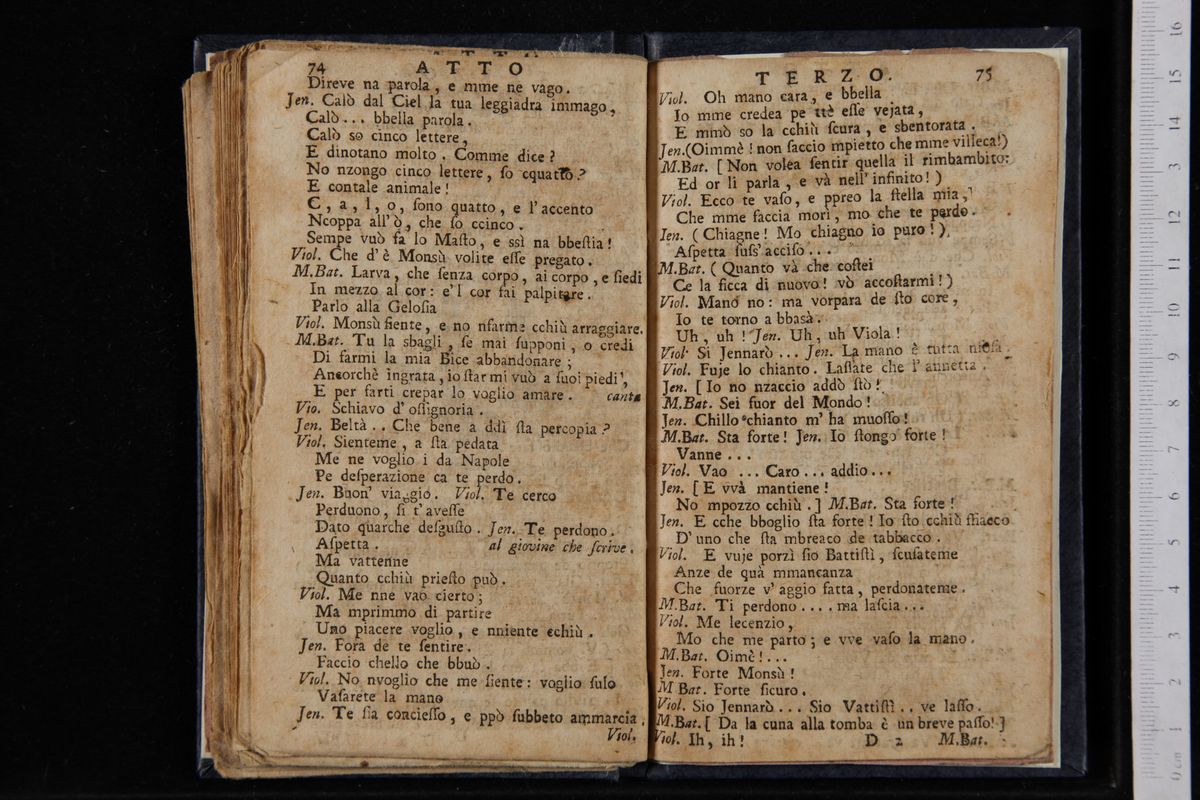 74 ATTO
Direve na parola, e mme ne vago.
Jen. Calò dal Ciel la tua leggiadra immago,
Calò... bbella parola.
Calò so cinco lettere,
E dinotano molto. Comme dice?
No nzongo cinco lettere, ſo cquatto?
E contale animale!
C, a, l, o, ſono quatto, e l'accento
Ncoppa all' ò, che ſo ccinco.
Sempe vuò fa lo Maſto, e ssì na bbeſtia!
Viol. Che d'è Monsù volite eſſe pregato.
M.Bat. Larva, che ſenza corpo, ai corpo, e ſiedi
In mezzo al cor: e'l cor fai palpitare.
Parlo alla Geloſia
Viol. Monsù ſiente, e no nfarme cchiù arraggiare.
M.Bat. Tu la sbagli, ſe mai ſupponi, o credi
Di farmi la mia Bice abbandonare;
Ancorchè ingrata, io ſtar mi vuò a ſuoi piedi,
E per farti crepar lo voglio amare. canta
Vio. Schiavo d' oſſignoria.
Jen. Beltà.. Che bene a ddì ſta percopia?
Viol. Sienteme, a ſta pedata
Me ne voglio i da Napole
Pe deſperazione ca te perdo.
Jen. Buon' viaggio. Viol. Te cerco
Perduono, ſi t'aveſſe
Dato quarche deſguſto. Jen. Te perdono.
Aſpetta. al giovine che ſcrive.
Ma vattenne
Quanto cchiù prieſto può.
Viol. Me nne vao cierto;
Ma mprimmo di partire
Uno piacere voglio, e nniente cchiù.
Jen. Fora de te ſentire.
Faccio chello che bbuò.
Viol. No nvoglio che me ſiente: voglio ſulo
Vaſarete la mano
Jen. Te ſia concieſſo, e ppò ſubbeto ammarcia.
Viol.
TERZO. 75
Viol. Oh mano cara, e bbella
Io mme credea pe ttè eſſe vejata,
E mmò so la cchiù ſcura, e sbentorata.
Jen.(Oimmè! non ſaccio mpietto che mme villeca!)
M.Bat. [Non volea ſentir quella il rimbambito:
Ed or li parla, e và nell' infinito!)
Viol. Ecco te vaſo, e ppreo la ſtella mia,
Che mme faccia morì, mo che te perdo.
Jen. (Chiagne! Mo chiagno io puro!)
Aſpetta ſuſs' acciſo...
M.Bat. (Quanto và che coſtei
Ce la ficca di nuovo! vò accoſtarmi!)
Viol. Mano no: ma vorpara de ſto core,
Io te torno a bbasà.
Uh, uh! Jen. Uh, uh Viola!
Viol. Si Jennarò... Jen. La mano è tutta nfoſa.
Viol. Fuje lo chianto. Laſſate che l'annetta.
Jen. [Io no nzaccio addò ſtò!
M.Bat. Sei fuor del Mondo!
Jen. Chillo chianto m' ha muoſſo!
M.Bat. Sta forte! Jen. Io ſtongo forte!
Vanne...
Viol. Vao ... Caro... addio...
Jen. [E vvà mantiene!
No mpozzo cchiù.] M.Bat. Sta forte!
Jen. E cche bboglio ſta forte! Io ſto cchiù ſfiacco
D'uno che ſta mbreaco de tabbacco.
Viol. E vuje porzì ſio Battiſtì, ſcuſateme
Anze de quà mmancanza
Che fuorze v'aggio fatta, perdonateme.
M.Bat. Ti perdono.... ma laſcia...
Viol. Me lecenzio,
Mo che me parto; e vve vaſo la mano.
M.Bat. Oimè!...
Jen. Forte Monsù!
M Bat. Forte ſicuro.
Viol. Sio Jennarò... Sio Vattiſtì.. ve laſſo.
M.Bat.[Da la cuna alla tomba è un breve paſſo!]
Viol. Ih, ih! D 2 M.Bat.